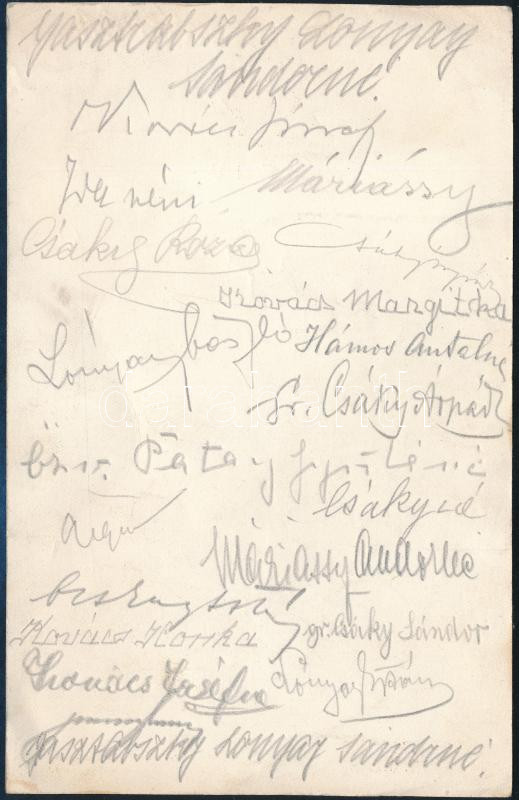 Jasztrabszky Lonyay
Sándorné.
Kovács József
Ida néni Máriássy
Csáky Róza
Kovács Margitka
Lónyay László Hámos Antalné
Gr. Csáky Árpád
özv. Patay Gyuláné
Csákyné
Máriássy Andorné
Kovács Ilonka gr. Csáky Sándor
Kovács Józsefné Lónyay István
Jasztrabszky Lonyay Sándorné.
darabanth